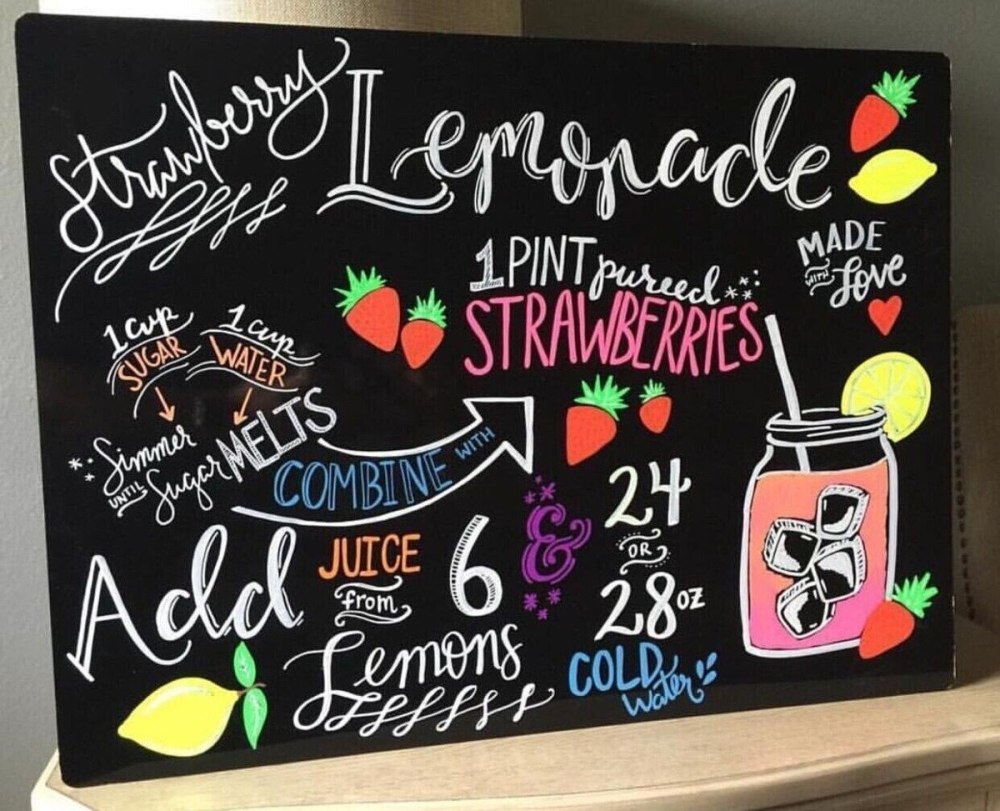 Strawberry Lemonade
MADE
WITH Love
1 cup
SUGAR
1 cup
WATER
Simmer
UNTIL Sugar MELTS
COMBINE WITH
1 PINT pureed
STRAWBERRIES
Add JUICE
from
6
Lemons
&
24
OR
28 oz
COLD
Water